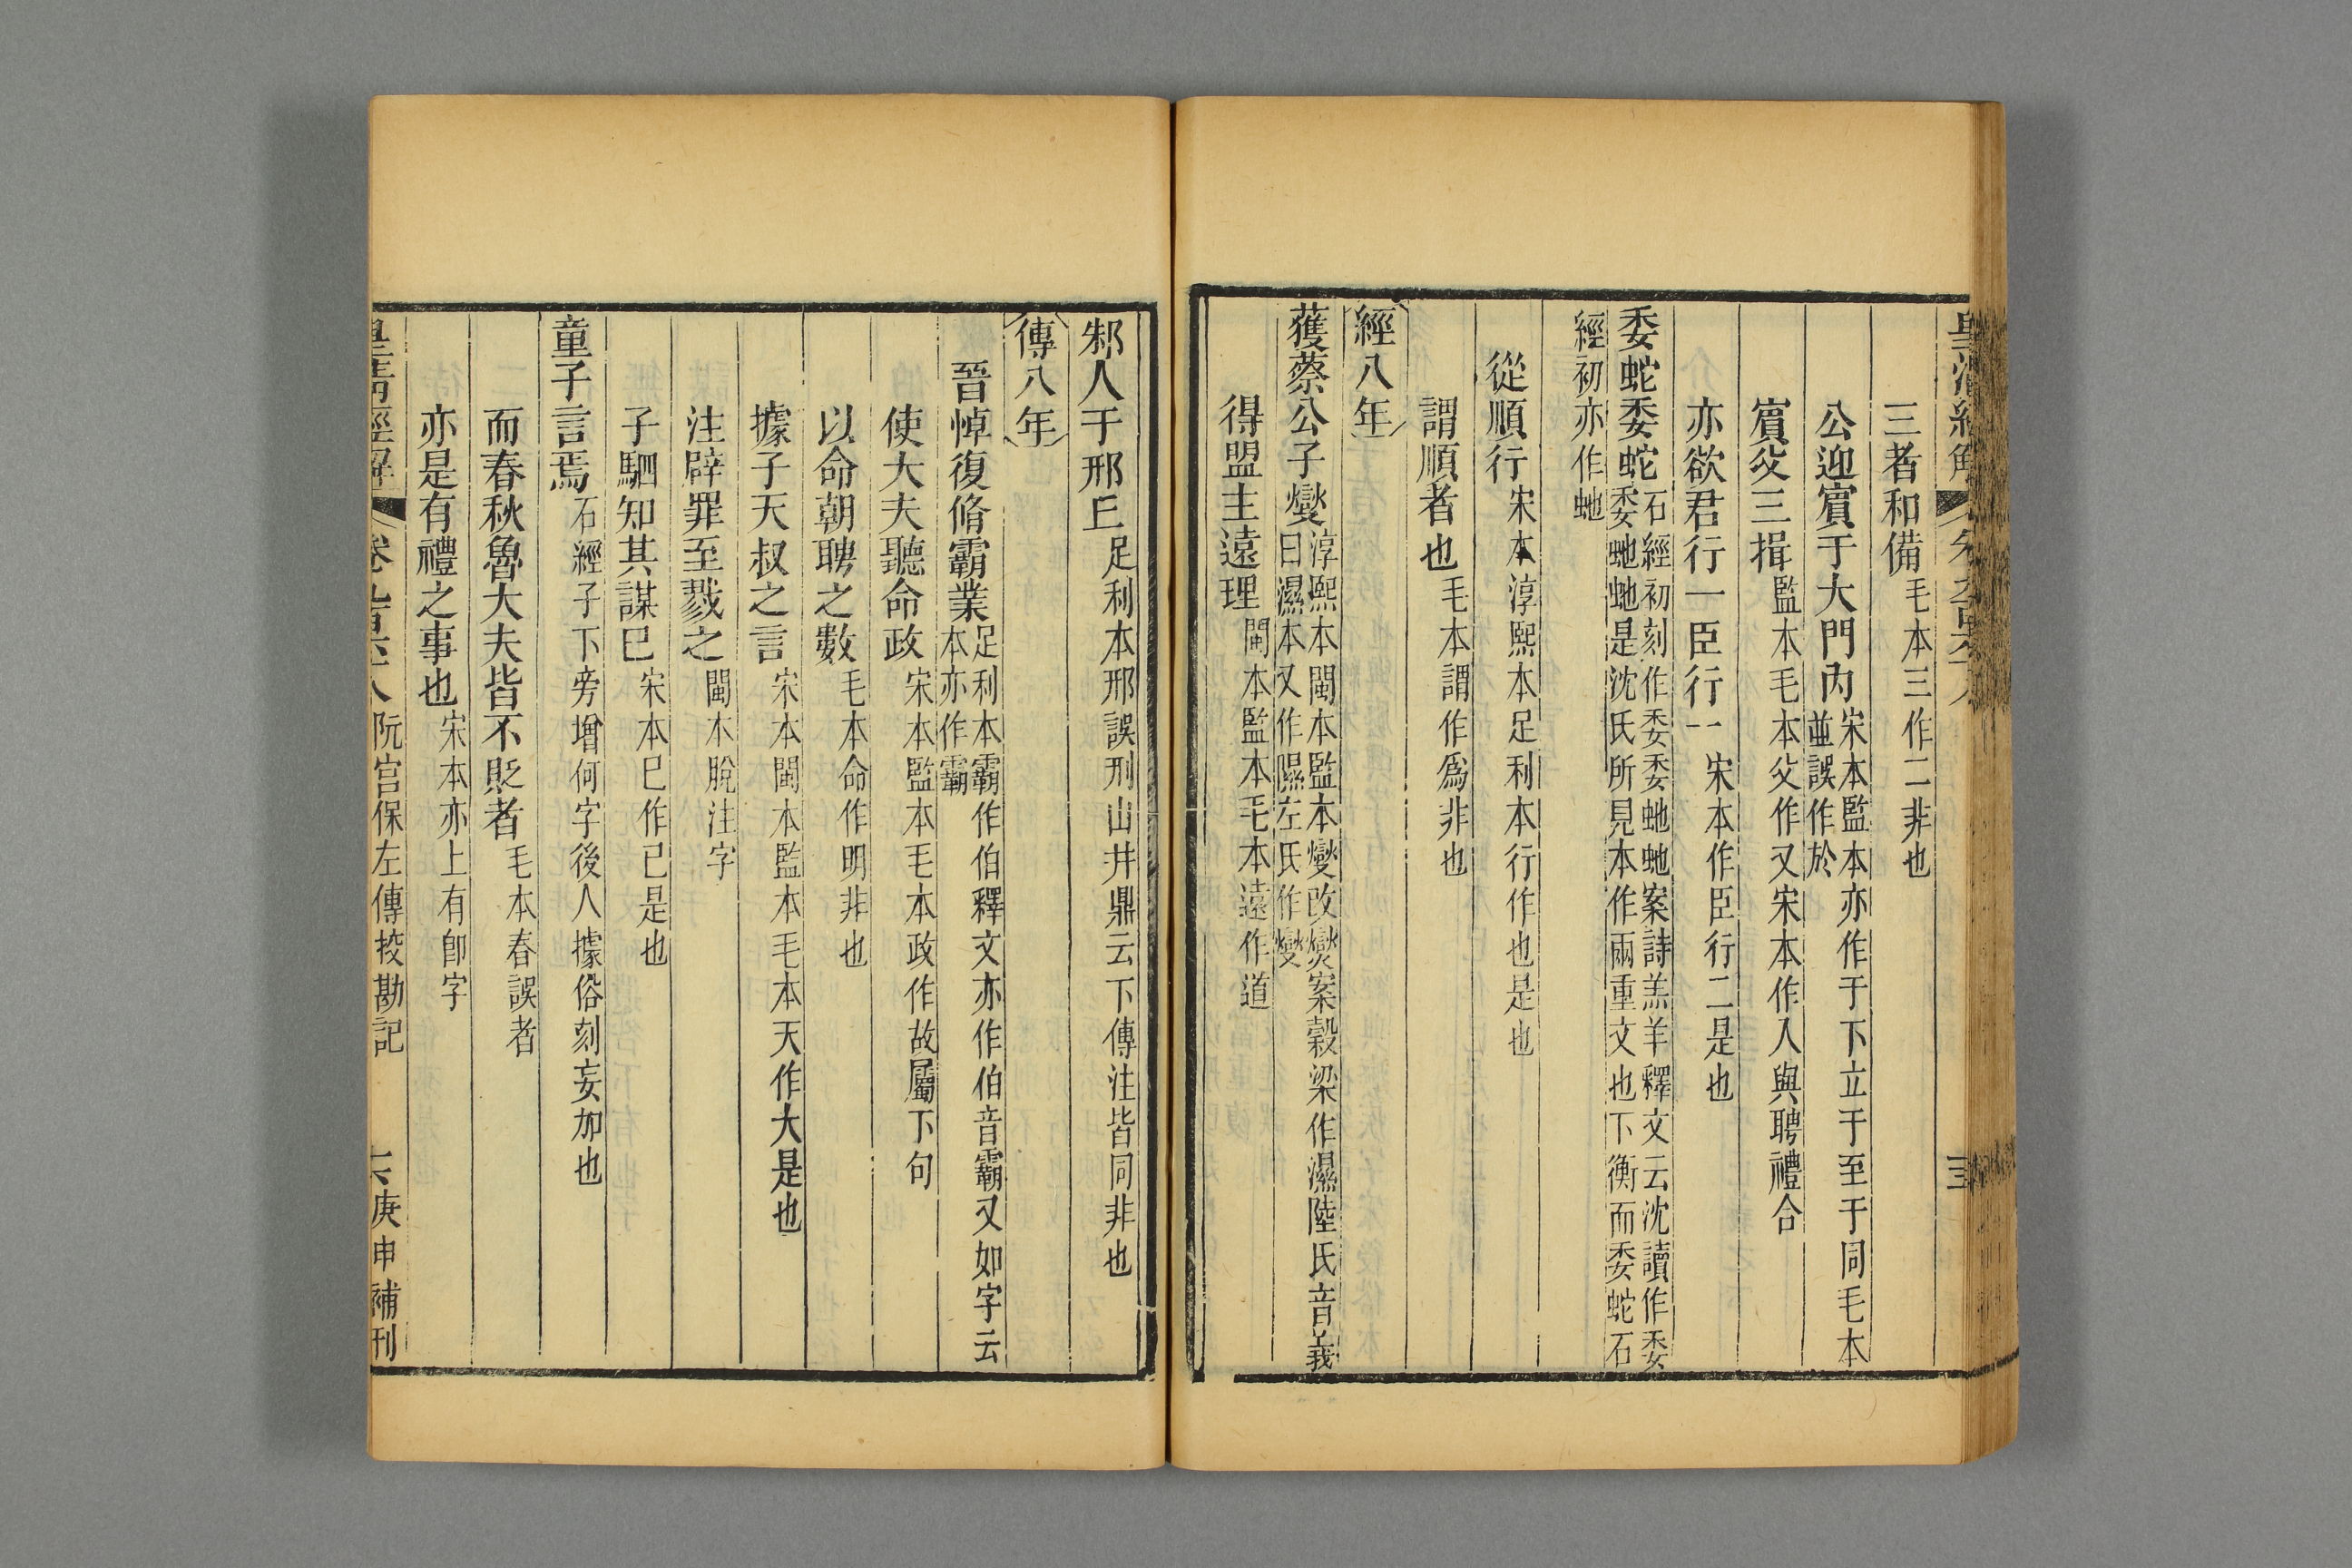 皇清經解
三者和備毛本三作二非也
公迎賔于大門內宋本監本亦作于下立于至于同毛本並誤作於
賔㕛三揖監本毛本㕛作又宋本作入與聘禮合
亦欲君行一臣行一宋本作臣行二是也
委蛇委蛇石經初刻作委委虵虵案詩羔羊釋文云沈讀作委委虵虵是沈氏所見本作兩重文也下衡而委蛇石
經初亦作虵
從順行宋本淳熙本足利本行作也是也
謂順者也毛本謂作爲非也
經八年
獲蔡公子燮淳熙本閩本監本燮改爕案穀梁作濕陸氏音義曰濕本又作隰左氏作燮
得盟主遠理閩本監本毛本遠作道
邾人于邢𠀉足利本邢誤刑山井鼎云下傳注皆同非也
傳八年
晉悼復脩霸業足利本霸作伯釋文亦作伯音霸又如字云本亦作霸
使大夫聽命政宋本監本毛本政作故屬下句
以命朝聘之數毛本命作明非也
據子天叔之言宋本閩本監本毛本天作大是也
注辟罪至戮之閩本脫注字
子駟知其謀巳宋本巳作已是也
童子言焉石經子下旁增何字後人據俗刻妄加也
而春秋魯大夫皆不貶者毛本春誤者
亦是有禮之事也宋本亦上有卽字
皇淸經解 卷九百五十八 阮宮保左傳挍勘記 庚申補刊